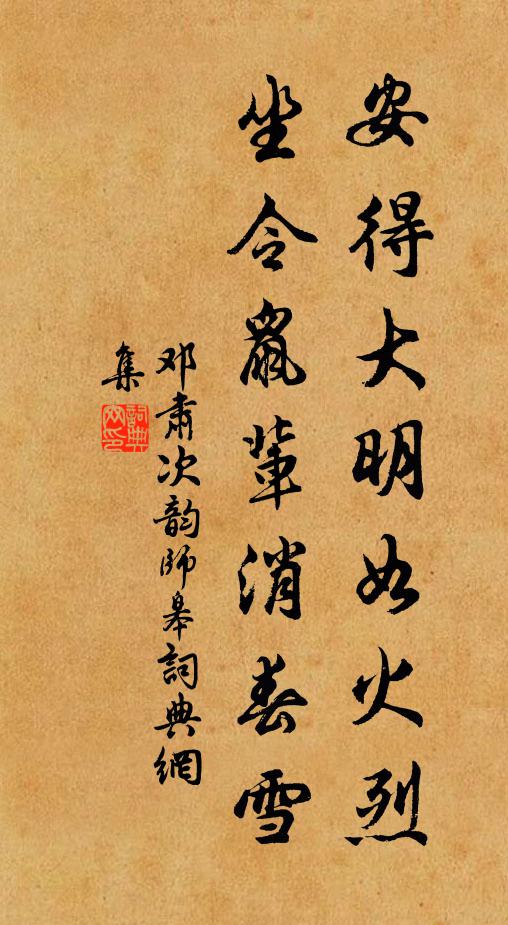 安得大明如火烈
坐令鼠輩消春雪
邓肅次韵師皋詞典網
集
詞典網印